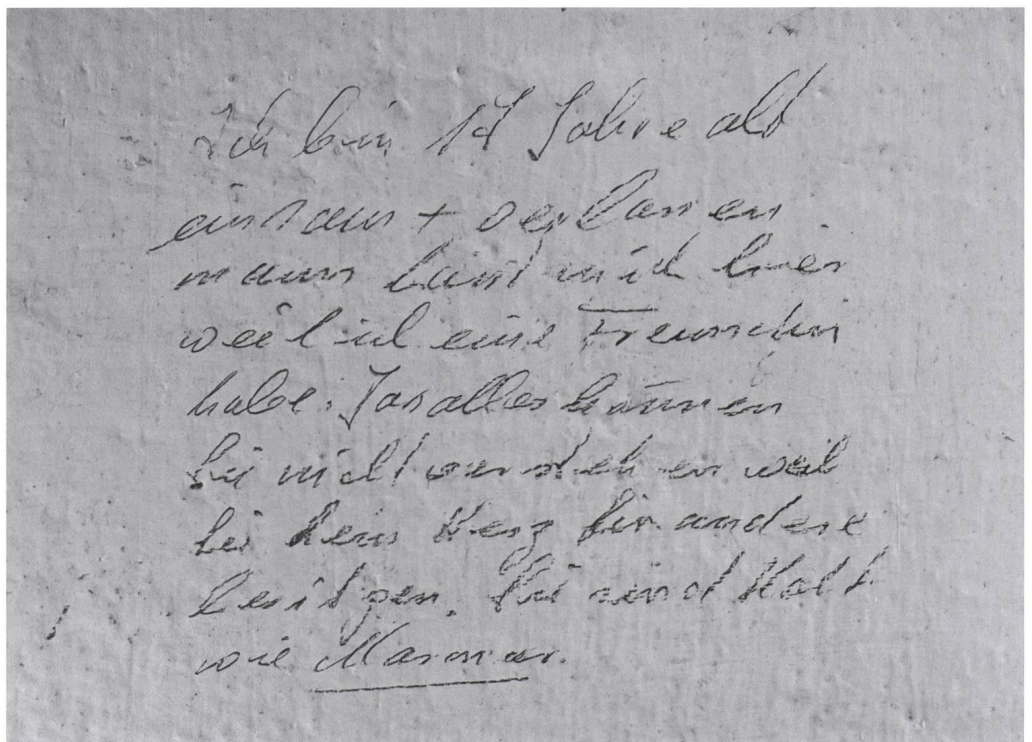 Ich bin 17 Jahre alt
einsam + verlassen
mann hält mich hier
weil ich eine Freundin
habe. Das alles können
Sie nicht verstehen weil
Sie kein Herz für andere
besitzen. Sie sind Kalt
wie Marmor.